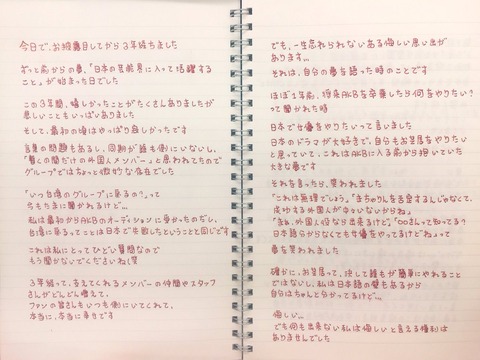 今日で、お披露目してから3年経ちました
ずっと前からの夢、「日本の芸能界に入って活躍する
こと」が始まった日でした
この3年間、嬉しかったことがたくさんありましたが
悲しいこともいっぱいありました
そして、最初の頃はやっぱり寂しかったです
言葉の問題もあるし、同期が誰も側にいないし、
「暫くの間だけの外国人メンバー」と思われてたので
グループではちょっと微妙な存在でした
「いつ台湾のグループに戻るの?」って
今もたまに聞かれるけど...
私は最初からAKBのオーディションに受かったのだし、
台湾に戻るってことは日本で失敗したということと同じです
これは私にとってひどい質問なので
もう聞かないでくださいね(笑
3年経って、支えてくれるメンバーの仲間やスタッフ
さんがどんどん増えて、
ファンの皆さんもいつも側にいてくれて、
本当に、本当に幸せです
でも、一生忘れられないある悔しい思い出が
あります...
それは、自分の夢を語った時のことです
ほぼ1年前、将来AKBを卒業したら何をやりたい?
って聞かれた時
日本で女優をやりたいって言いました
日本のドラマが大好きで、自分もお芝居をやりたい
と思っていて、これはAKBに入る前から抱いていた
大きな夢です
それを言ったら、笑われました
「これは無理でしょう」「まちゃりんを否定するんじゃなくて、
成功する外国人が少ないないからね」
「まぁ、外国人役なら出来るけど」「○○さんって知ってる?
日本語うからなくても女優をやってるけどね」って
夢を笑われました
確かに、お芝居って、決して誰もが簡単にやれること
ではないし、私は日本語の壁もあるから
自分はちゃんと分かってるけど...
悔しい...
でも何も出来ない私は悔しいと言える権利は
ありませんでした